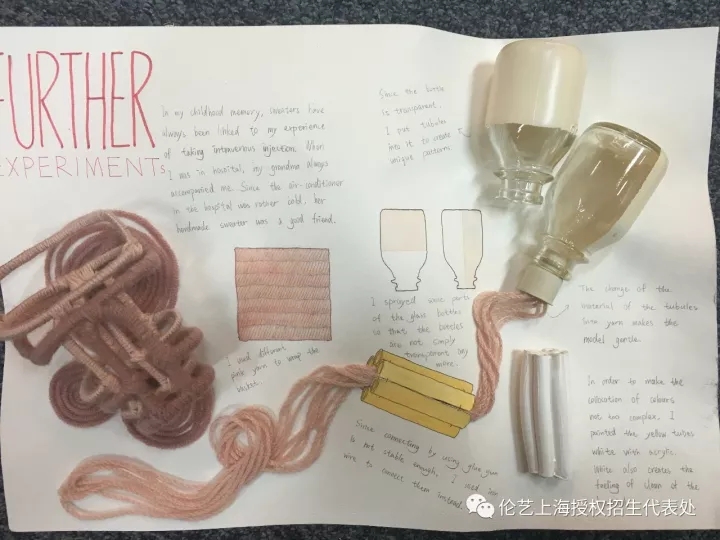 FURTHER
EXPERIMENTS
In my childhood memory, sweaters have
always been linked to my experience
of taking intravenous injection. When
I was in hospital, my grandma always
accompanied me. Since the air-conditioner
in the hospital was rather cold, her
handmade sweater was a good friend.
Since the bottle
is transparent.
I put tubules
into it to create
unique patterns
I sprayed some parts
of the glass bottles
so that the bottles
are not simply
transparent any
more.
The change of the
material of the tubules
into yarn makes the
model gentle.
I used different
pink yarn to wrap the
basket.
Since connecting by using glue gun
is not stable enough, I used iron
wire to connect them instead.
In order to make the
collocation of colours
not too complex, I
painted the yellow tubes
white with acrylic.
White also creates the
feeling of clean of the
伦艺上海授权招生代表处